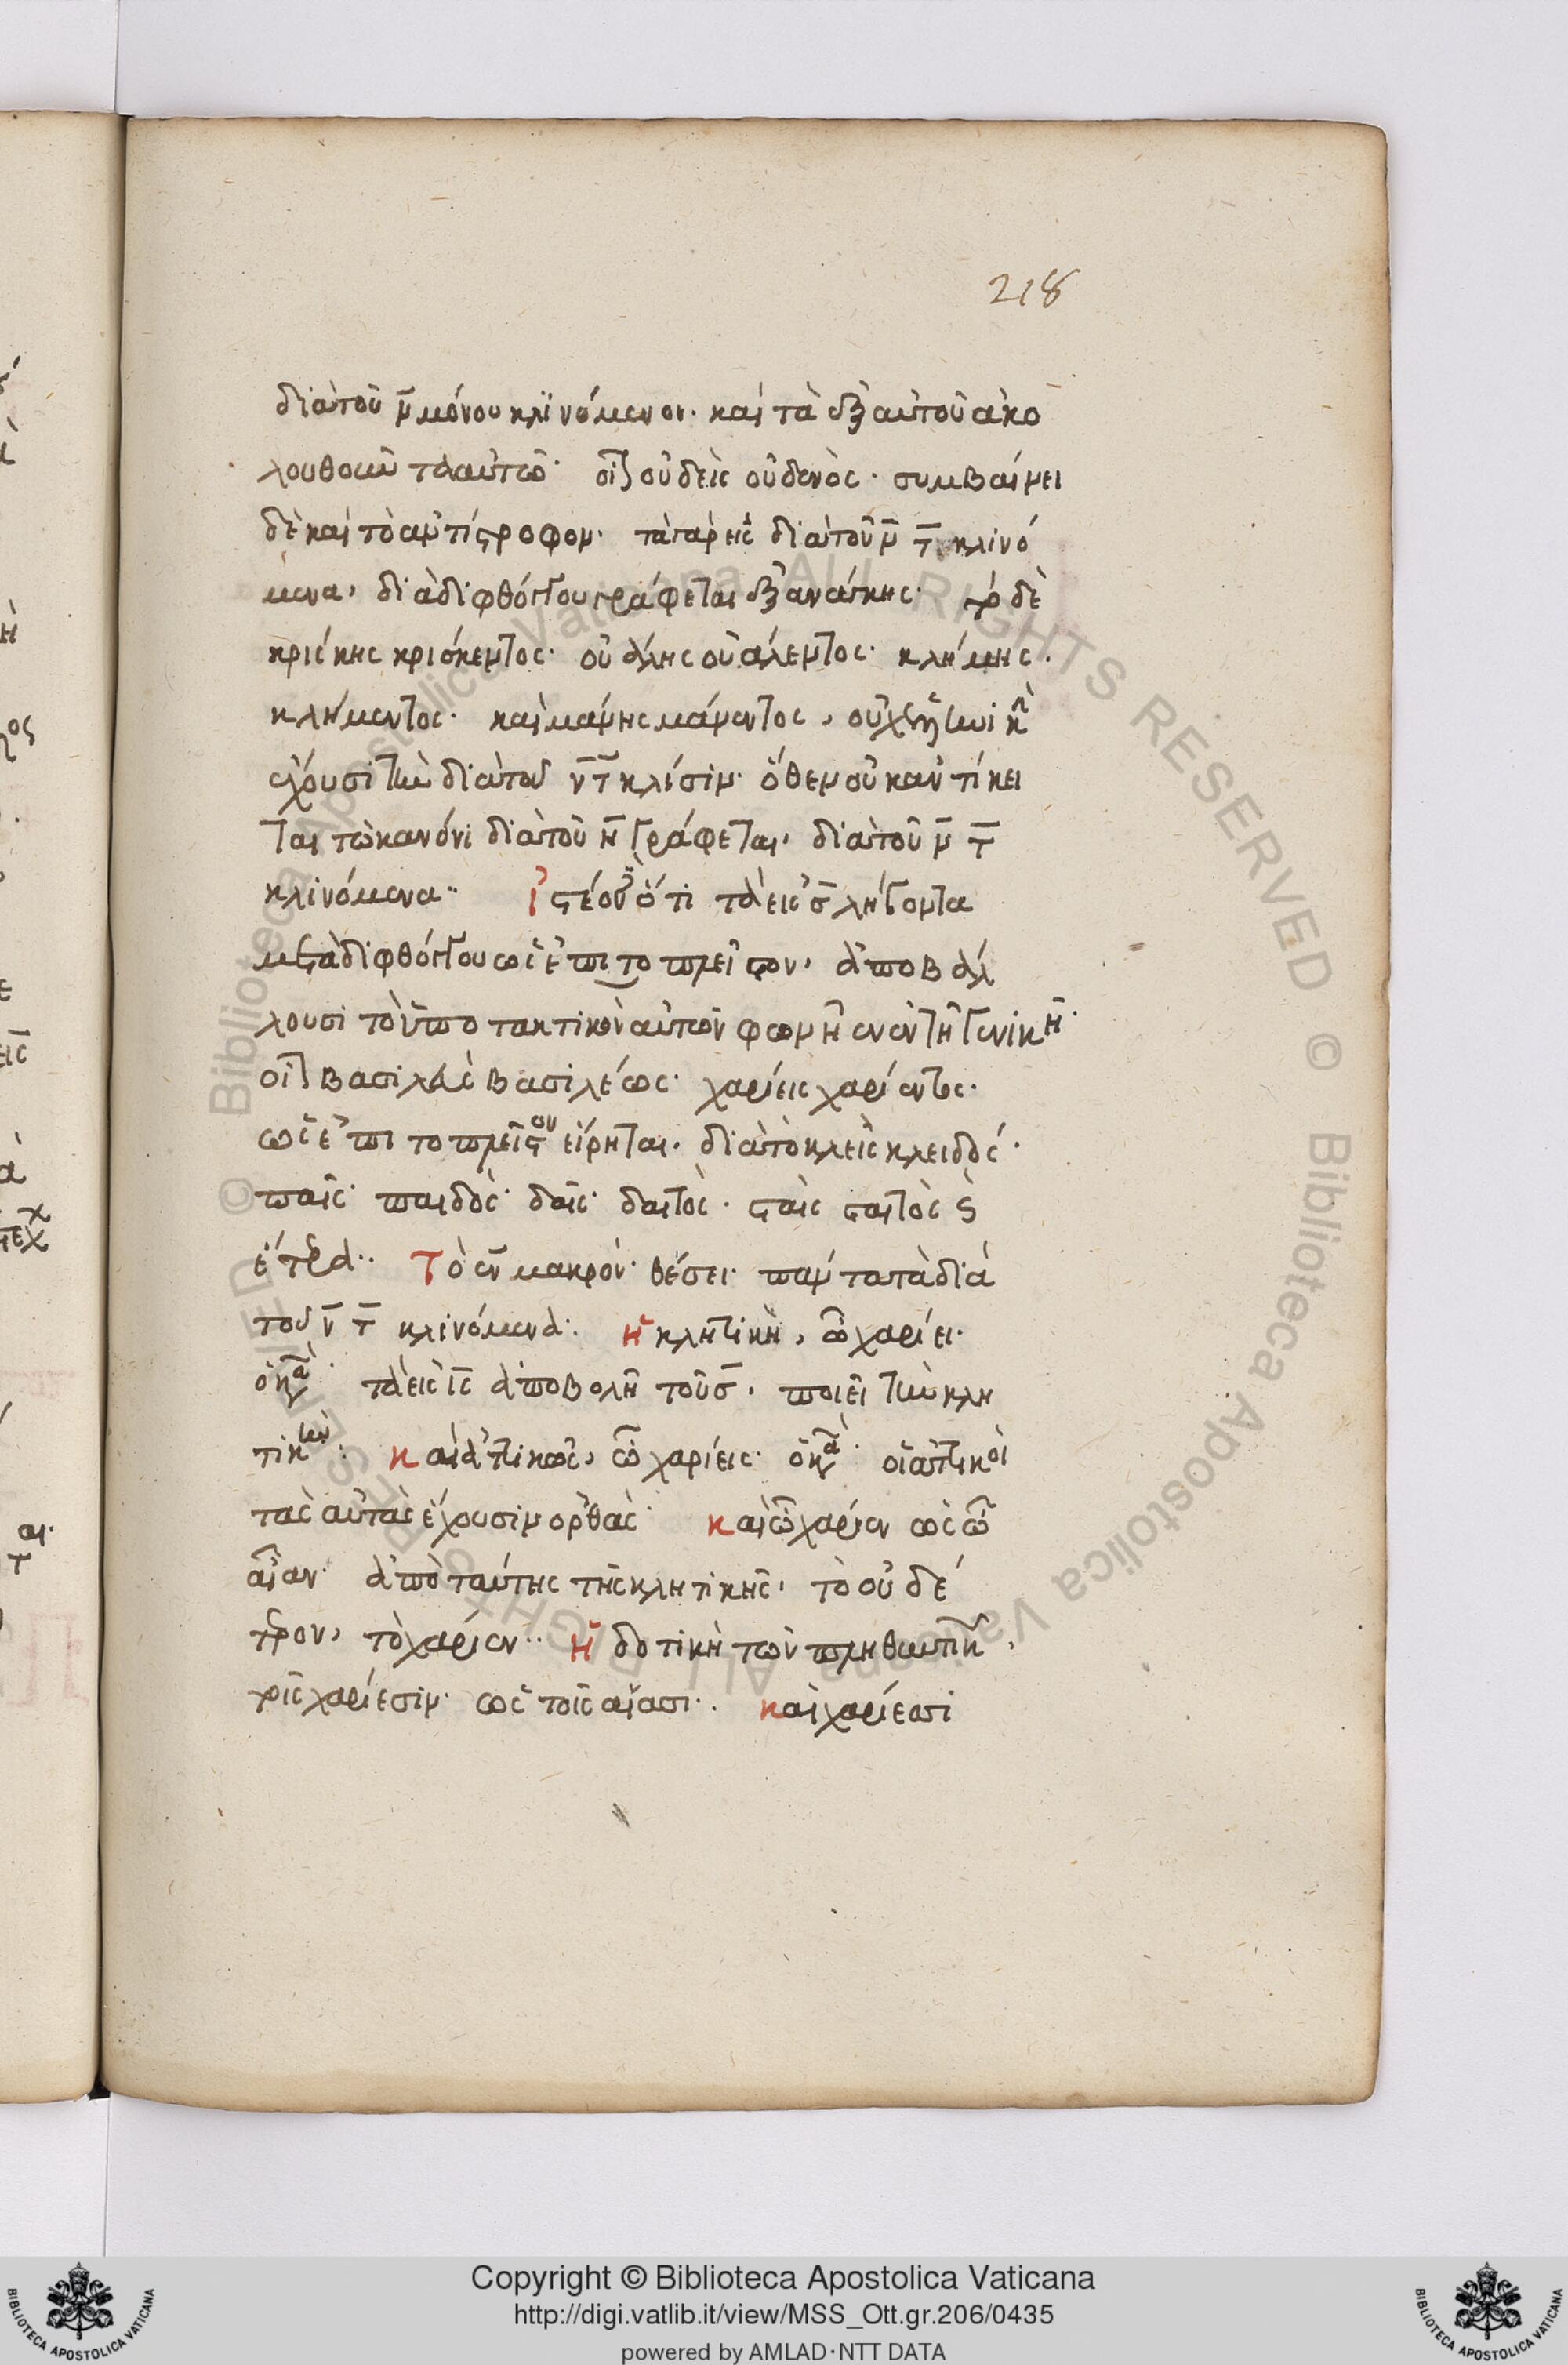 218
διὰ τοῦ ν̄ μόνου κλινόμενον· καὶ τὰ ἐξ αὐτοῦ ἀκο
λουθοῦν τὰ αὐτῶ· οἷον οὐδεὶς οὐδενός· συμβαίνει
δὲ καὶ τὸ ἀντίστροφον· τὰ γὰρ εἰς διὰ τοῦ ν̄ τ̄ κλινό
μενα, διὰ διφθόγγου γράφεται ἐξ ἀνάγκης· τὸ δὲ
κρίσκης κρίσκεντος· οὐάλης οὐάλεντος· κλήμης·
κλήμεντος· καὶ μάμης μάμεντος, οὐχ ἑλληνικὴν
ἔχουσι τὴν διὰ τοῦ ν̄ τ̄ κλίσιν· ὅθεν οὐκ ἀντίκει
ται τῶ κανόνι διὰ τοῦ η̄ γράφεται, διὰ τοῦ ν̄ τ̄
κλινόμενα·· Ἰστέον ὅτι τὰ εἰς σ̄ λήγοντα
μετὰ διφθόγγου ὡς ἐπιτοπλεῖστον, ἀποβάλ
λουσι τὸ ὑποτακτικὸν αὐτῶν φωνῆεν ἐν τῆ γενικῆ·
οἷον βασιλεὺς βασιλέως· χαρίεις χαρίεντος·
ὡς ἐπιτοπλεῖστον εἴρηται· διὰ τὸ κλεὶς κλειδός·
παῖς παιδὸς· δαῖς δαιτὸς· σταῖς σταιτὸς καὶ
ἕτερα·· Τὸ εν μακρὸν θέσει· πάντα τὰ διὰ
τοῦ ν̄ τ̄ κλινόμενα· ἡ κλητικὴ, ὦ χαρίει·
ὁ κανών· τὰ εἰς ις ἀποβολῆ τοῦ σ̄, ποιεῖ τὴν κλη
τικήν· καὶ ἀττικῶς, ὦ χαρίεις· ὁ κανών· οἱ ἀττικοὶ
τὰς αὐτὰς ἔχουσιν ὀρθάς· καὶ ὦ χαρίεν ὡς ὦ
αἶαν· ἀπὸ ταύτης τῆς κλητικῆς, τὸ οὐδέ
τερον, τὸ χαρίεν·· ἡ δοτικὴ τῶν πληθυντικῶν,
τοῖς χαρίεσιν· ὡς τοῖς αἴασι·· καὶ χαρίεσι
Copyright © Biblioteca Apostolica Vaticana
http://digi.vatlib.it/view/MSS_Ott.gr.206/0435
powered by AMLAD·NTT DATA